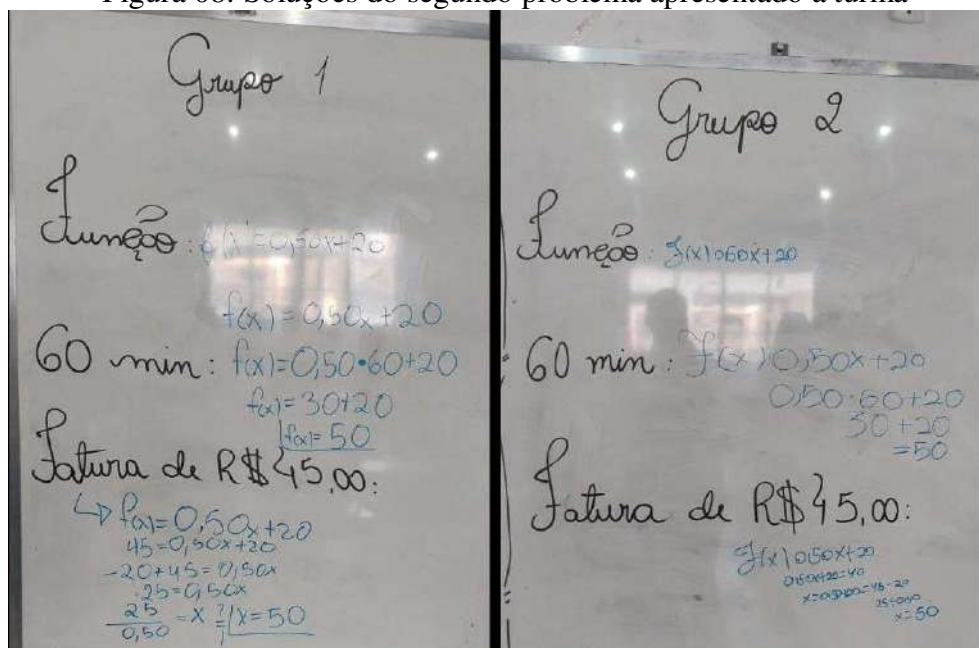 Figura 08: Soluções do segundo problema apresentado à turma
Grupo 1
Função: f(x)=0,50x+20
f(x)=0,50x+20
60 min: f(x)=0,50•60+20
f(x)=30+20
f(x)=50
Fatura de R$45,00:
↳ f(x)=0,50x+20
45=0,50x+20
-20+45=0,50x
25=0,50x
25/0,50 =x x=50
Grupo 2
Função: f(x)
60 min: f(x)0,50x+20
0,50·60+20
30+20
=50
Fatura de R$45,00:
x=50